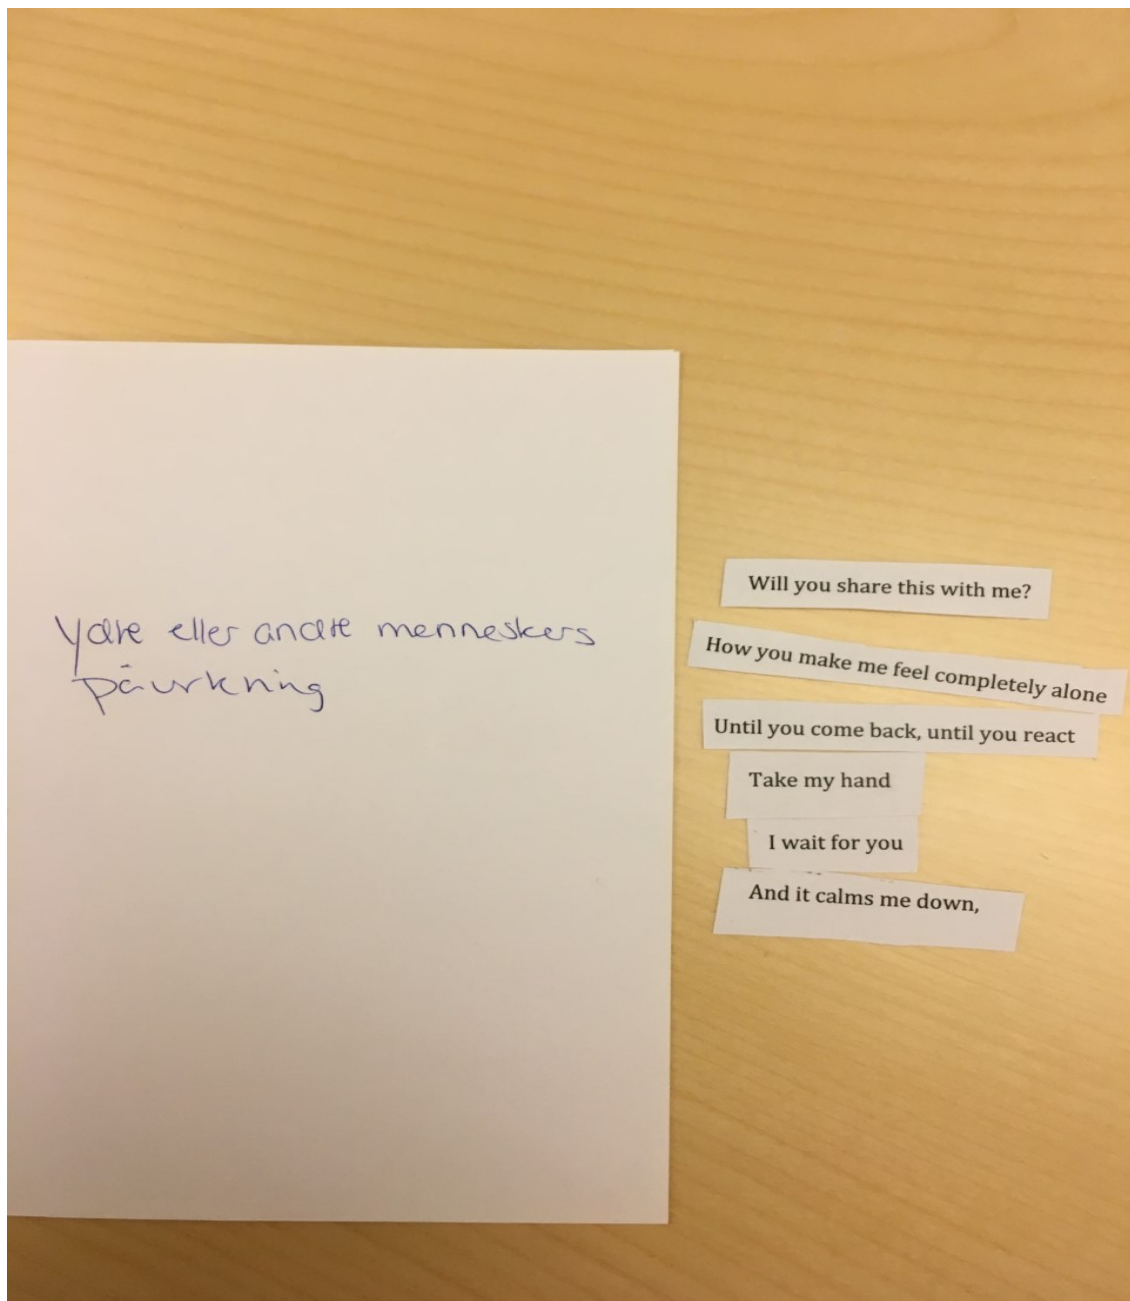 Ydre eller andre menneskers
påvirkning
Will you share this with me?
How you make me feel completely alone
Until you come back, until you react
Take my hand
I wait for you
And it calms me down,